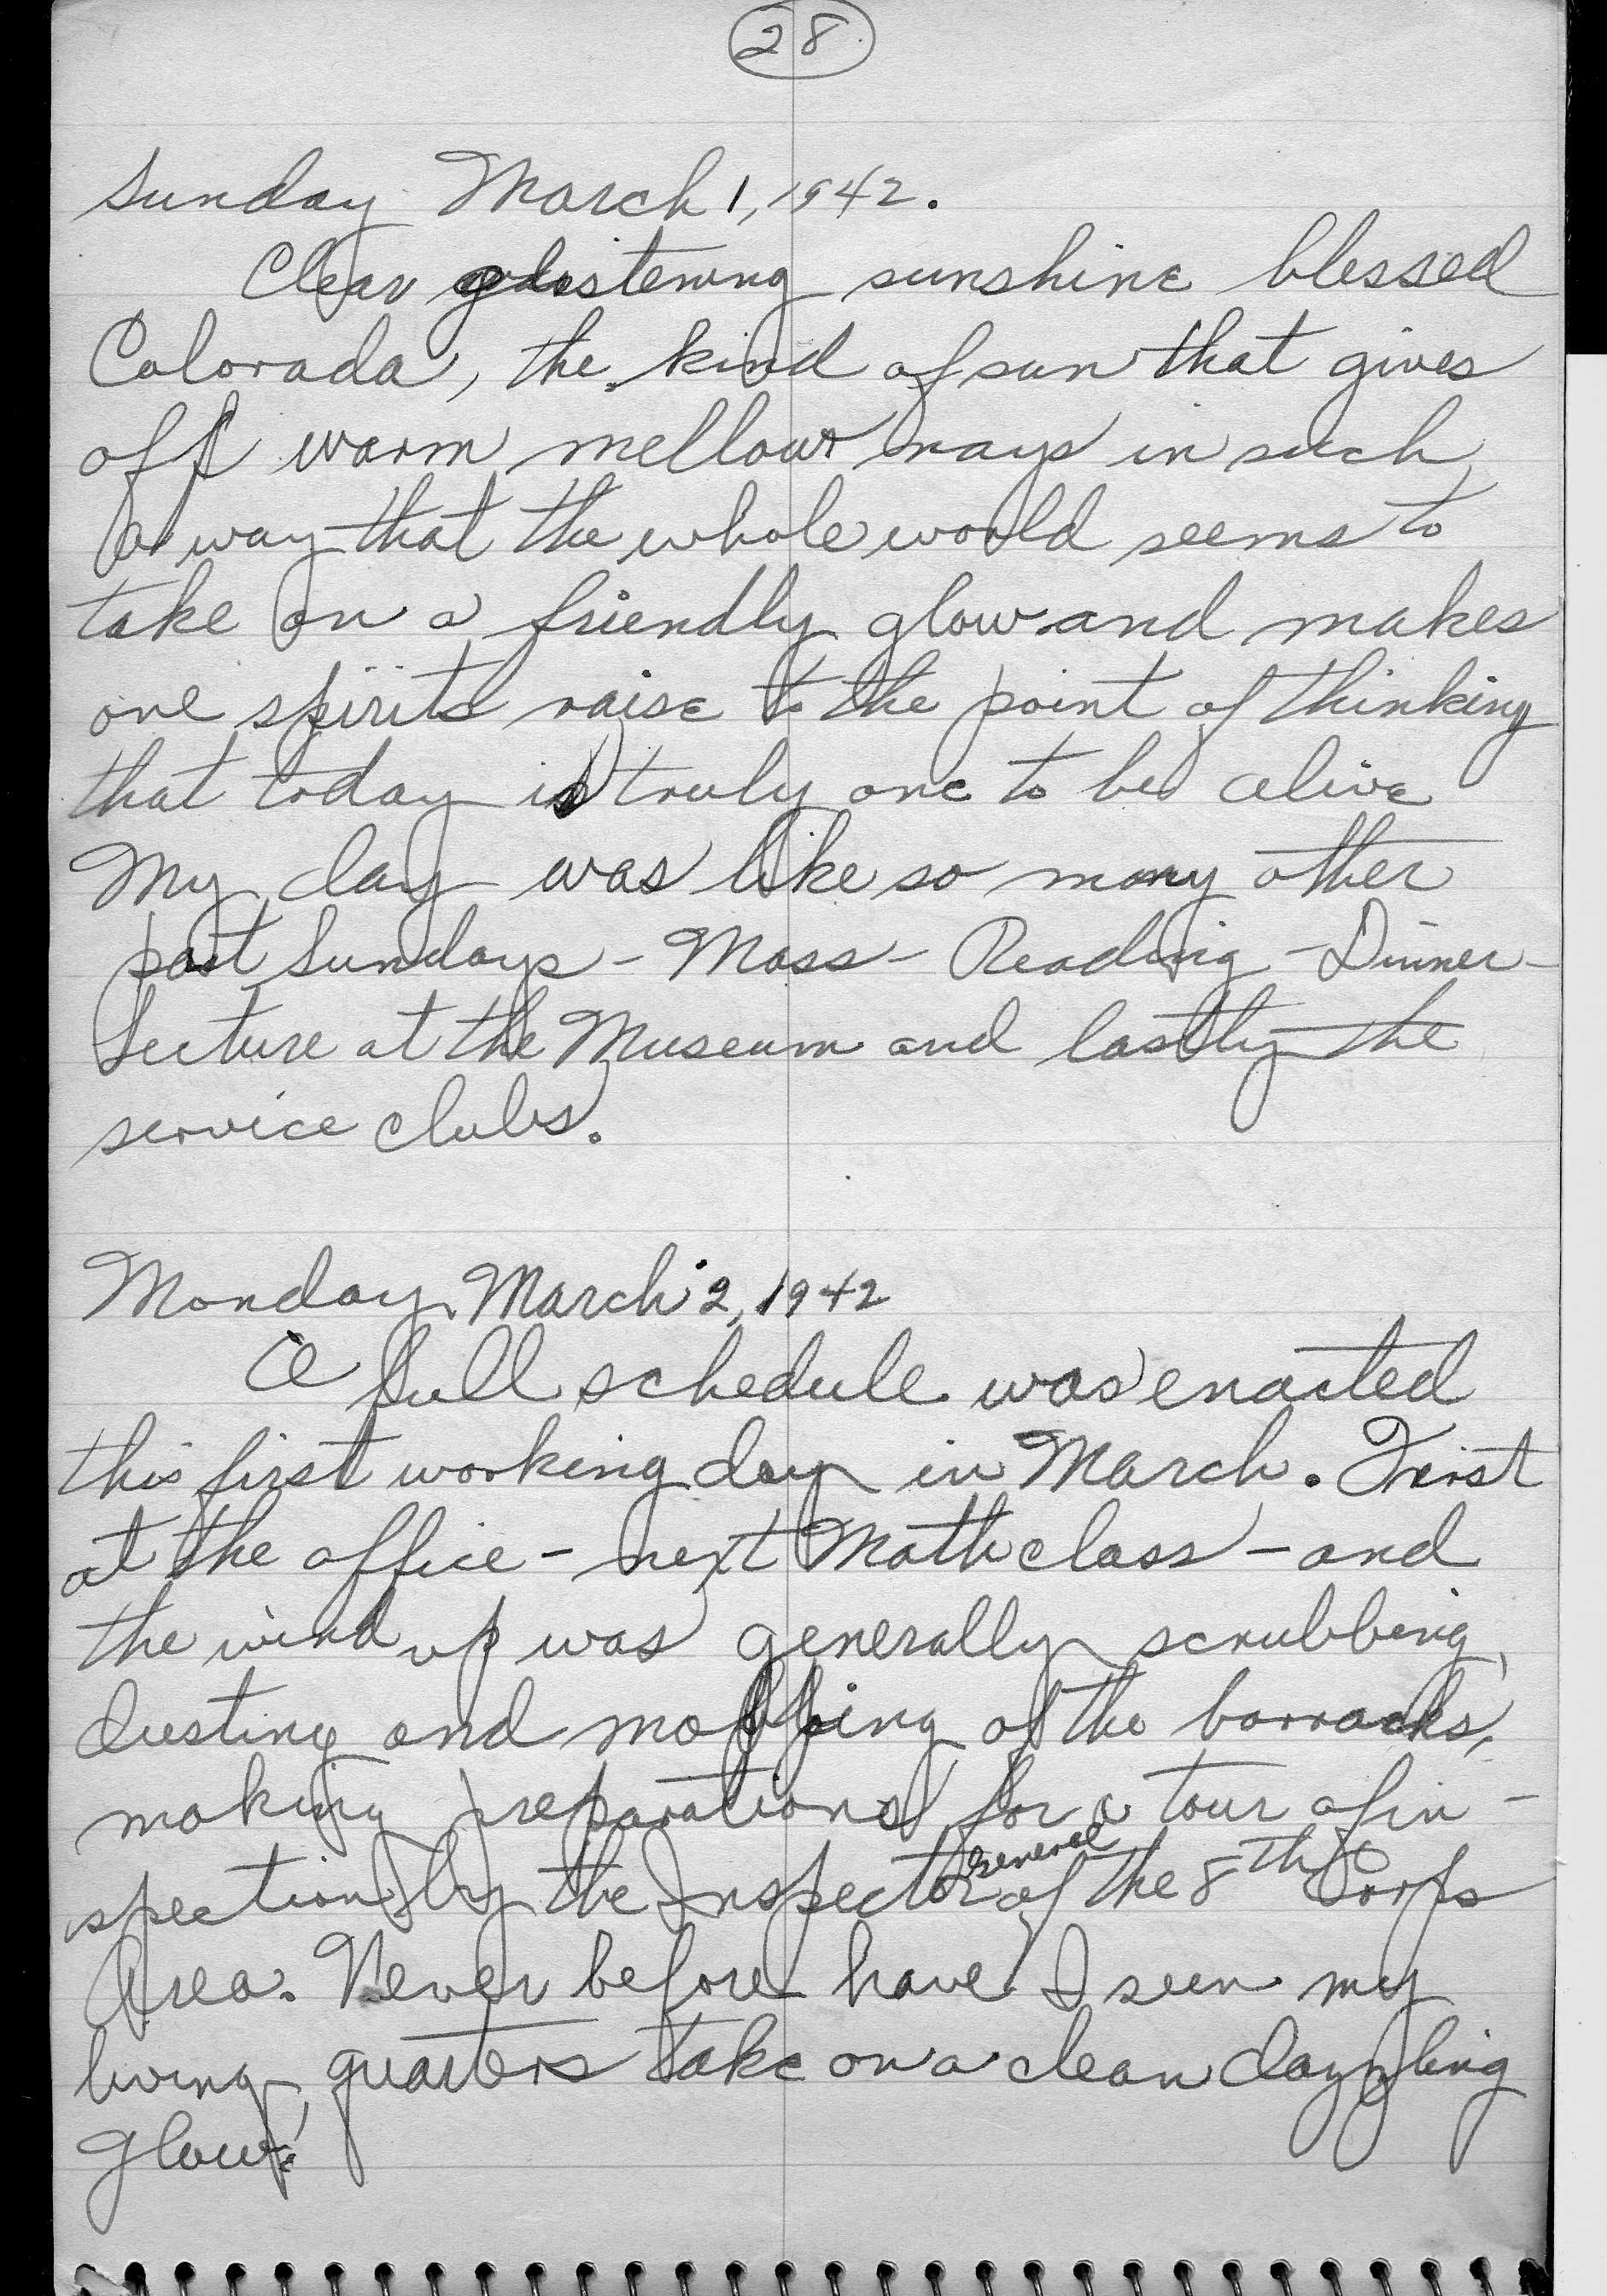 28
Sunday March 1, 1942.
Clear glistening sunshine blessed
Colorada, the kind of sun that gives
off warm mellow rays in such
a way that the whole world seems to
take on a friendly glow and makes
one spirits raise to the point of thinking
that today is truly one to be alive
My day was like so many other
past Sundays - Mass - Reading - Dinner -
Lecture at the Museum and lastly the
service clubs.
Monday March 2, 1942
A full schedule was enacted
this first working day in March. First
at the office - next Math class - and
the wind up was generally scrubbing,
dusting and mopping of the barracks,
making preparations for a tour of in -
spection by the Inspector General of the 8th Corps
Area. Never before have I seen my
living quarters take on a clean dazzling
glow.